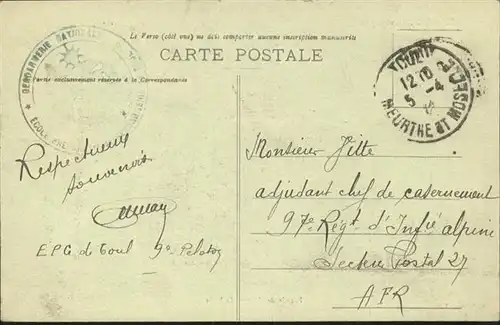 Le Verso (côté vue) ne doit comporter aucune inscription manuscrite
CARTE POSTALE
Partie exclusivement réservée à la Correspondance
GENDARMERIE NATIONALE
ECOLE
TOUL
12
5 -4
MEURTHE ET MOSELLE
Respectueux
souvenirs
E.P.G. de Toul 9e Peloton
Monsieur Jitte
adjudant chef de casernement
97e Régt d'Infie alpine
Secteur Postal 27
AFR